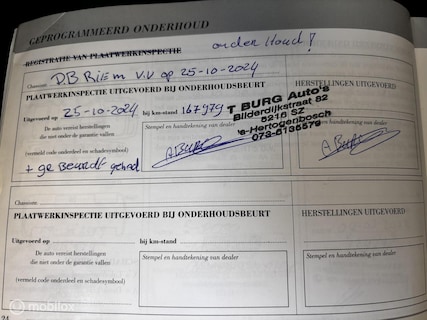 GEPROGRAMMEERD ONDERHOUD
REGISTRATIE VAN PLAATWERKINSPECTIE onder Houd!
Chassisnr. D.B Riem V.V op 25-10-2024
PLAATWERKINSPECTIE UITGEVOERD BIJ ONDERHOUDSBEURT
HERSTELLINGEN UITGEVOERD
Uitgevoerd op 25-10-2024 bij km-stand 167979
De auto vereist herstellingen
die niet onder de garantie vallen
(vermeld code onderdeel en schadesymbool)
+ gr Beurdt gehad
Stempel en handtekening van dealer
T BURG Auto's
Bilderdijkstraat 82
5216 SZ
's-Hertogenbosch
073-6135579
Chassisnr.
PLAATWERKINSPECTIE UITGEVOERD BIJ ONDERHOUDSBEURT
HERSTELLINGEN UITGEVOERD
Uitgevoerd op bij km-stand
De auto vereist herstellingen
die niet onder de garantie vallen
(vermeld code onderdeel en schadesymbool)
Stempel en handtekening van dealer
Stempel en handtekening van dealer
24
mobilox